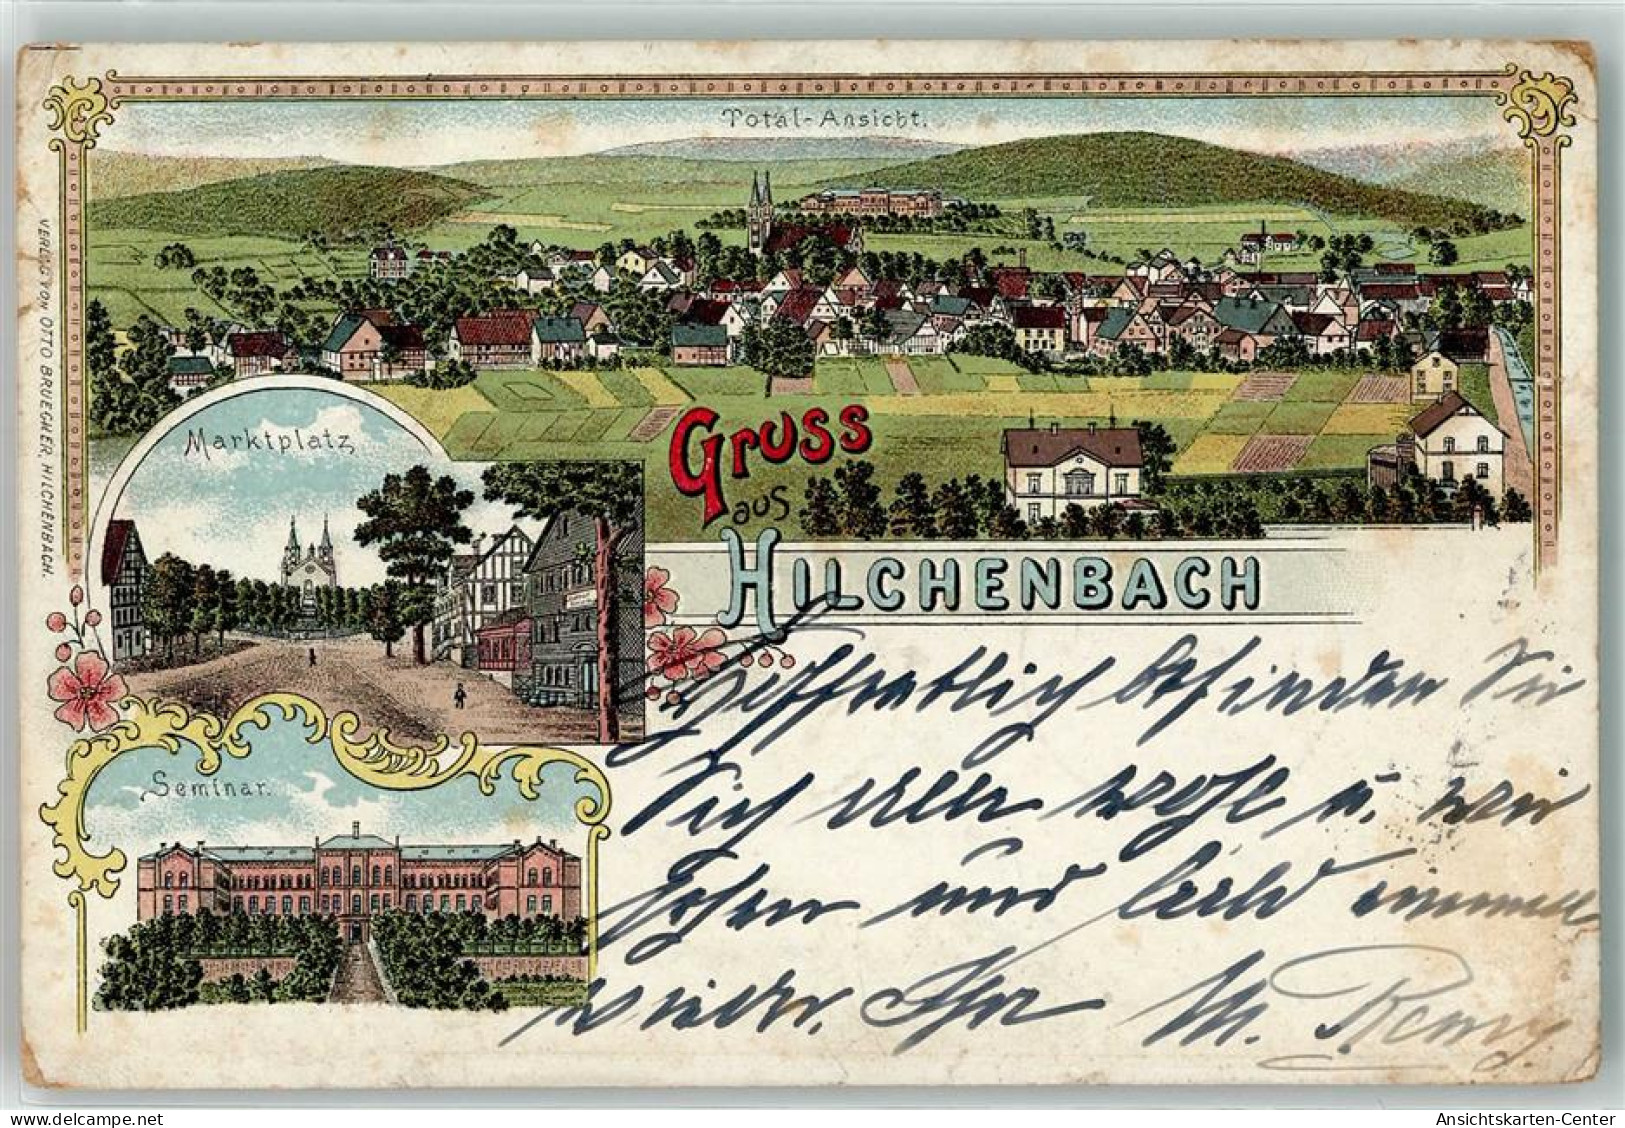 Total-Ansicht.
VERLAG VON OTTO BRUEGHER, HILCHENBACH.
Marktplatz
Gruss
aus
HILCHENBACH
Seminar.
Hoffentlich befinden Sie
Sich aller wohl u. wir
sehen uns bald einmal
wieder. Ihr W. Remy.
delcampe.net
Ansichtskarten-Center